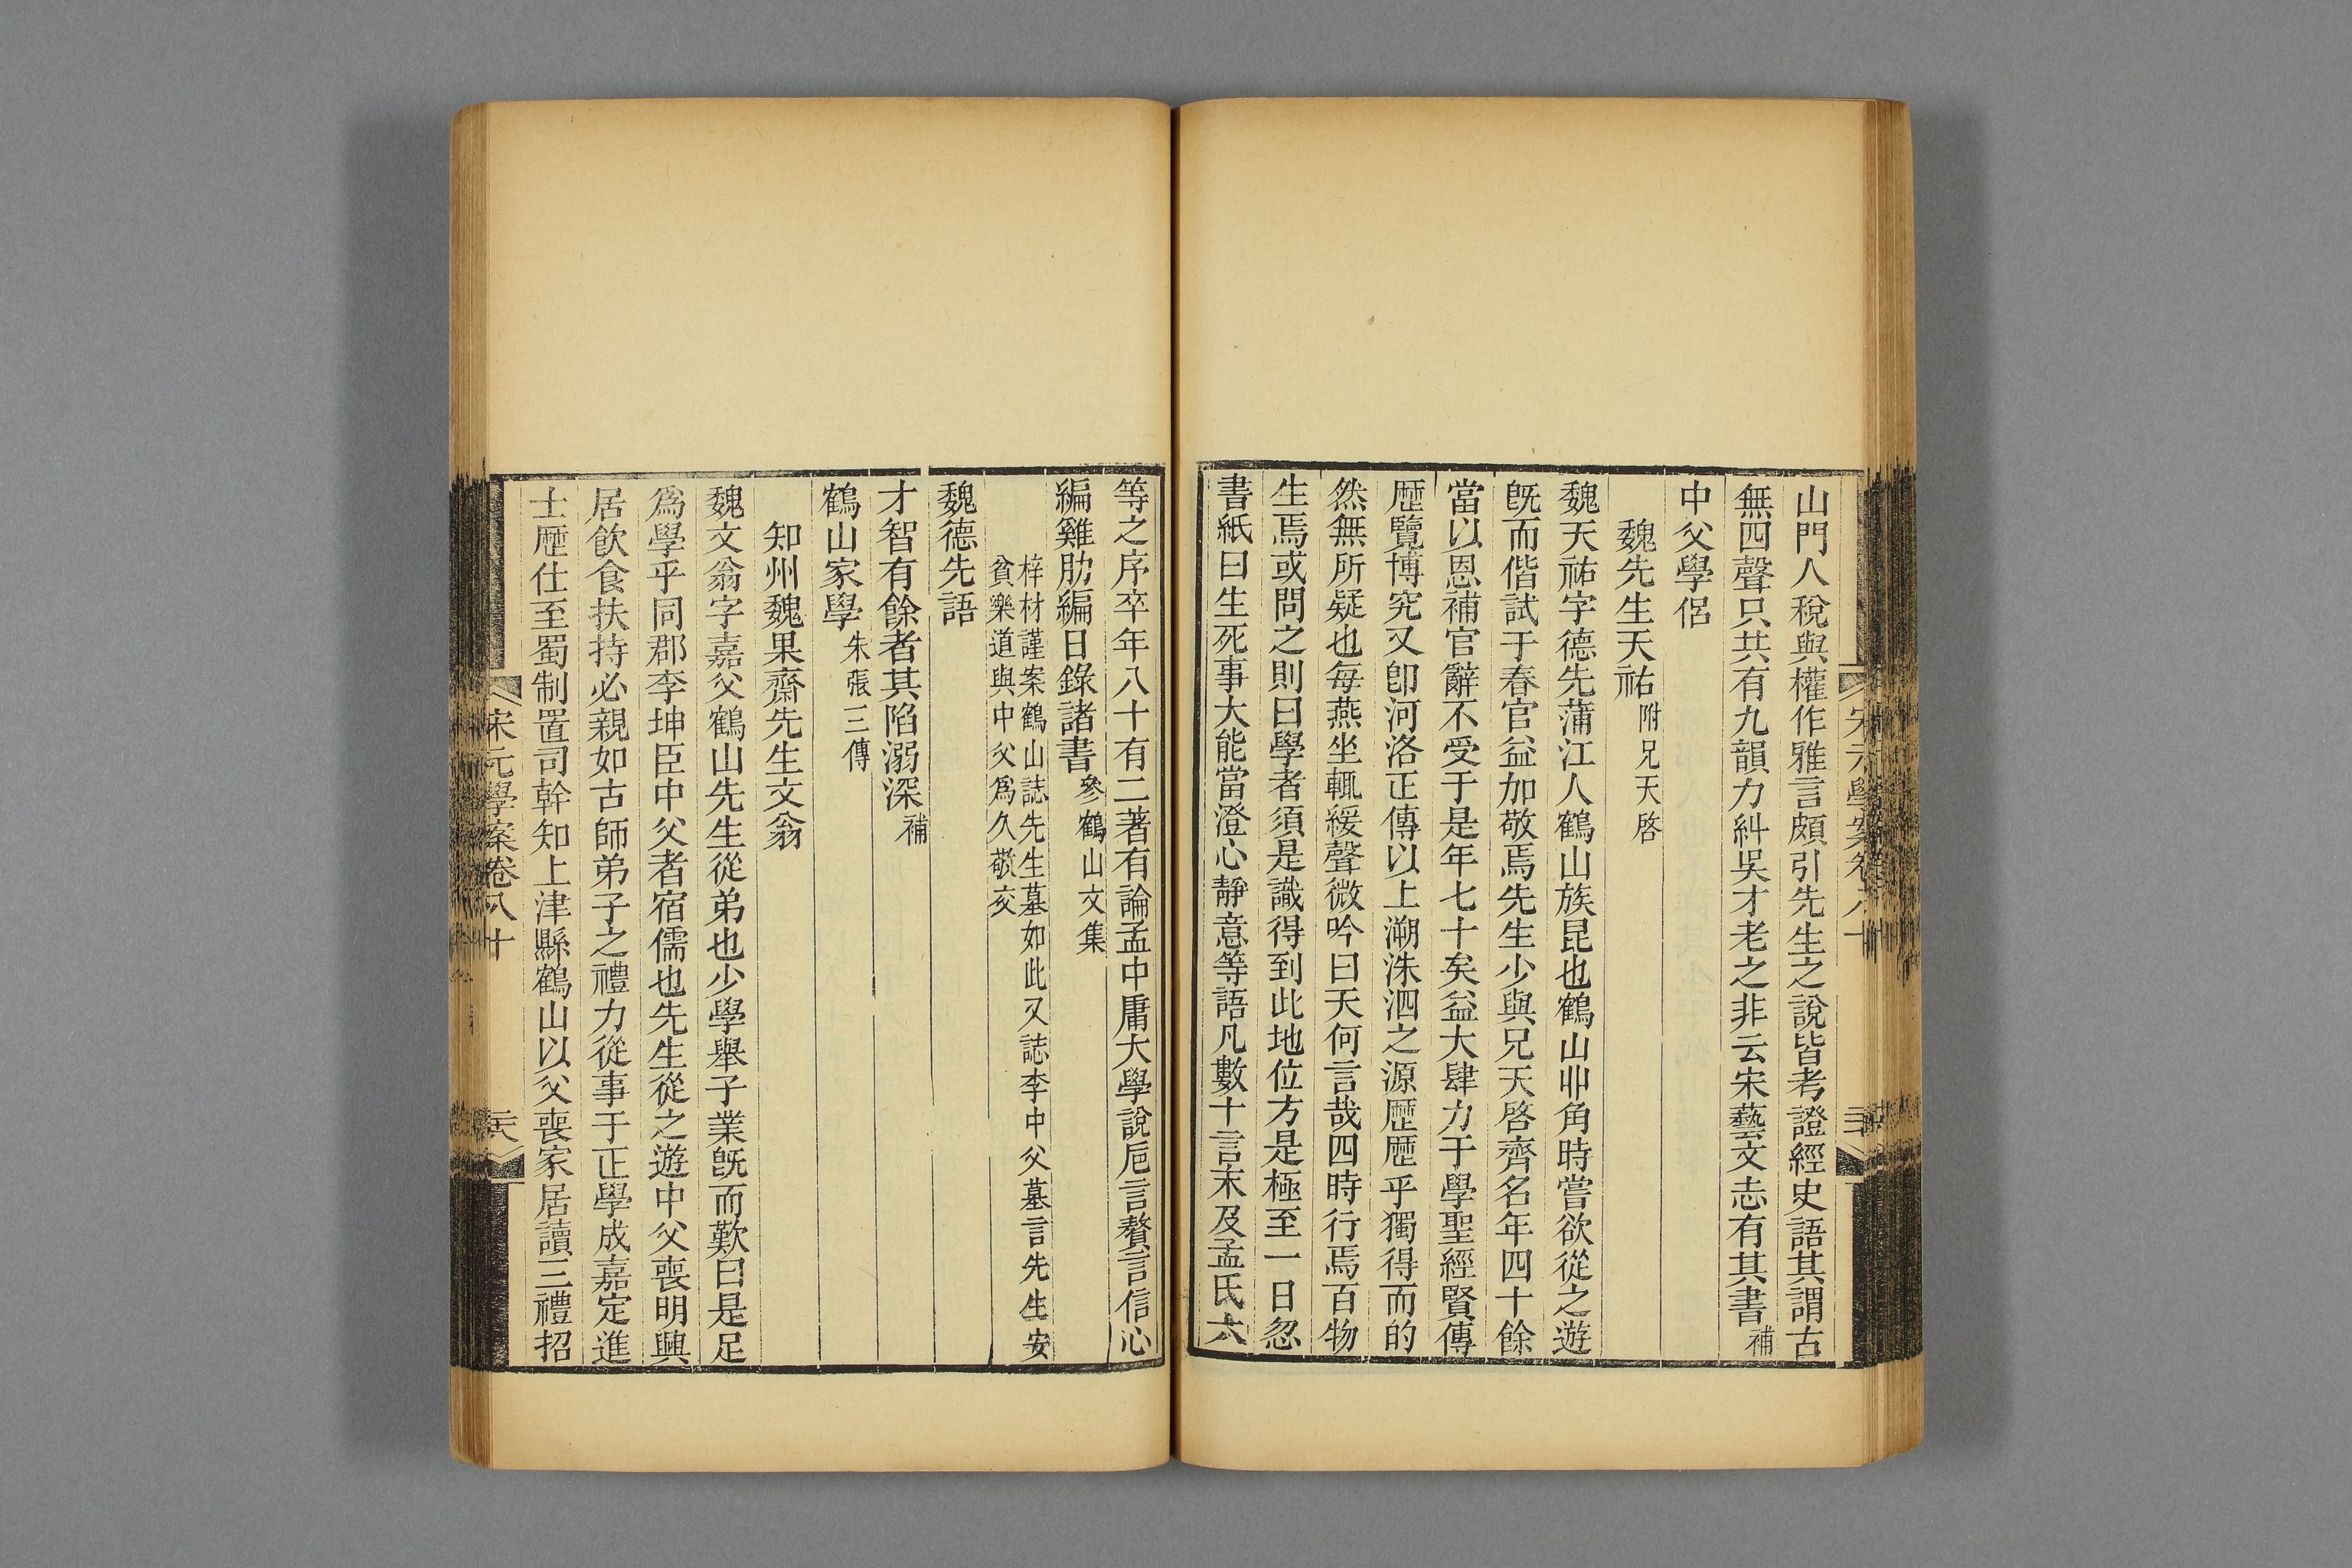 山門人稅與權作雅言頗引先生之說皆考證經史語其謂古
無四聲只共有九韻力糾吳才老之非云宋藝文志有其書補
中父學侶
魏先生天祐附兄天啓
魏天祐字德先蒲江人鶴山族昆也鶴山丱角時嘗欲從之遊
旣而偕試于春官益加敬焉先生少與兄天啓齊名年四十餘
當以恩補官辭不受于是年七十矣益大肆力于學聖經賢傳
歷覽博究又卽河洛正傳以上溯洙泗之源歷歷乎獨得而的
然無所疑也每燕坐輒緩聲微吟曰天何言哉四時行焉百物
生焉或問之則曰學者須是識得到此地位方是極至一日忽
書紙曰生死事大能當澄心靜意等語凡數十言末及孟氏六
等之序卒年八十有二著有論孟中庸大學說卮言贅言信心
編雞肋編日錄諸書參鶴山文集
梓材謹案鶴山誌先生墓如此又誌李中父墓言先生安
貧樂道與中父爲久敬交
魏德先語
才智有餘者其陷溺深補
鶴山家學朱張三傳
知州魏果齋先生文翁
魏文翁字嘉父鶴山先生從弟也少學舉子業旣而歎曰是足
爲學乎同郡李坤臣中父者宿儒也先生從之遊中父喪明興
居飮食扶持必親如古師弟子之禮力從事于正學成嘉定進
士歷仕至蜀制置司幹知上津縣鶴山以父喪家居讀三禮招
宋元學案卷八十